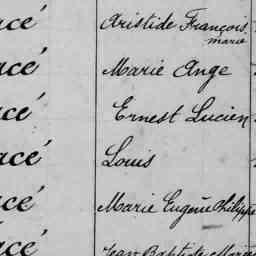 acé Aristide François
marie
acé Marie Ange
acé Ernest Lucien
acé Louis
acé Marie Eugène Philippe
acé Jean Baptiste Marie